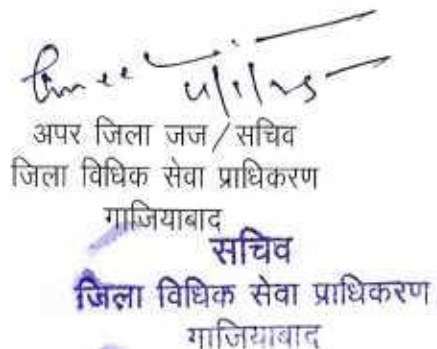 अपर जिला जज / सचिव
जिला विधिक सेवा प्राधिकरण
गाजियाबाद
सचिव
जिला विधिक सेवा प्राधिकरण
गाजियाबाद